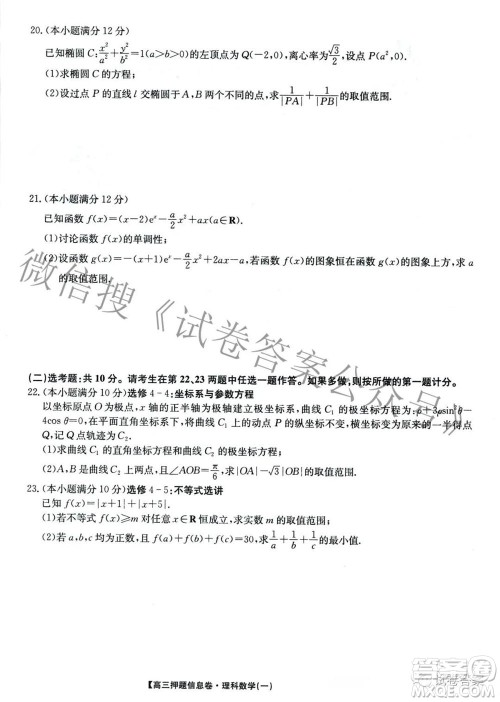 20.(本小题满分12分)
已知椭圆C:x²/a²+y²/b²=1(a>b>0)的左顶点为Q(-2,0),离心率为√3/2,设点P(√2/2,0).
(1)求椭圆C的方程;
(2)设过点P的直线l交椭圆于A,B两个不同的点,求1/|PA|+1/|PB|的取值范围.
21.(本小题满分12分)
已知函数f(x)=(x-2)eˣ-a/2x²+ax(a∈R).
(1)讨论函数f(x)的单调性;
(2)设函数g(x)=-(x+1)eˣ-a/2x²+2ax-a,若函数f(x)的图象恒在函数g(x)的图象上方,求a
的取值范围.
(二)选考题:共10分。请考生在第22、23两题中任选一题作答。如果多做,则按所做的第一题计分。
22.(本小题满分10分)选修4-4:坐标系与参数方程
以坐标原点O为极点,x轴的正半轴为极轴建立极坐标系,曲线C₁的极坐标方程为:ρ+3ρsin²θ-
4cosθ=0,在平面直角坐标系xOy中,将曲线C₁上的动点P的纵坐标不变,横坐标变为原来的
,得
Q点,记Q点轨迹为C₂.
(1)求曲线C₁的直角坐标方程和曲线C₂的极坐标方程;
(2)A,B是曲线C₂上不同于O的两点,且∠AOB=π/6,求|OA|-√3|OB|的取值范围.
23.(本小题满分10分)选修4-5:不等式选讲
已知f(x)=|x+1|+|x+5|.
(1)若不等式f(x)≥m对任意x∈R恒成立,求实数m的取值范围;
(2)若a,b,c均为正数,且f(a)+f(b)+f(c)=30,求1/a+1/b+1/c的最小值.
【高三押题信息卷·理科数学(一)
微信搜《试卷答案公众号》